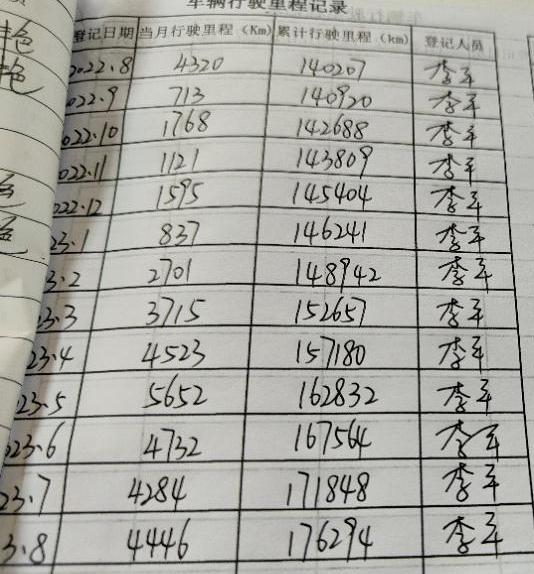 车辆行驶里程记录
登记日期 当月行驶里程（Km） 累计行驶里程（km） 登记人员
2022.8 4320 140207 李平
022.9 713 140920 李平
022.10 1768 142688 李平
022.11 1121 143809 李平
022.12 1595 145404 李平
23.1 837 146241 李平
3.2 2701 148942 李平
23.3 3715 152657 李平
23.4 4523 157180 李平
23.5 5652 162832 李平
023.6 4732 167564 李平
23.7 4284 171848 李平
3.8 4446 176294 李平